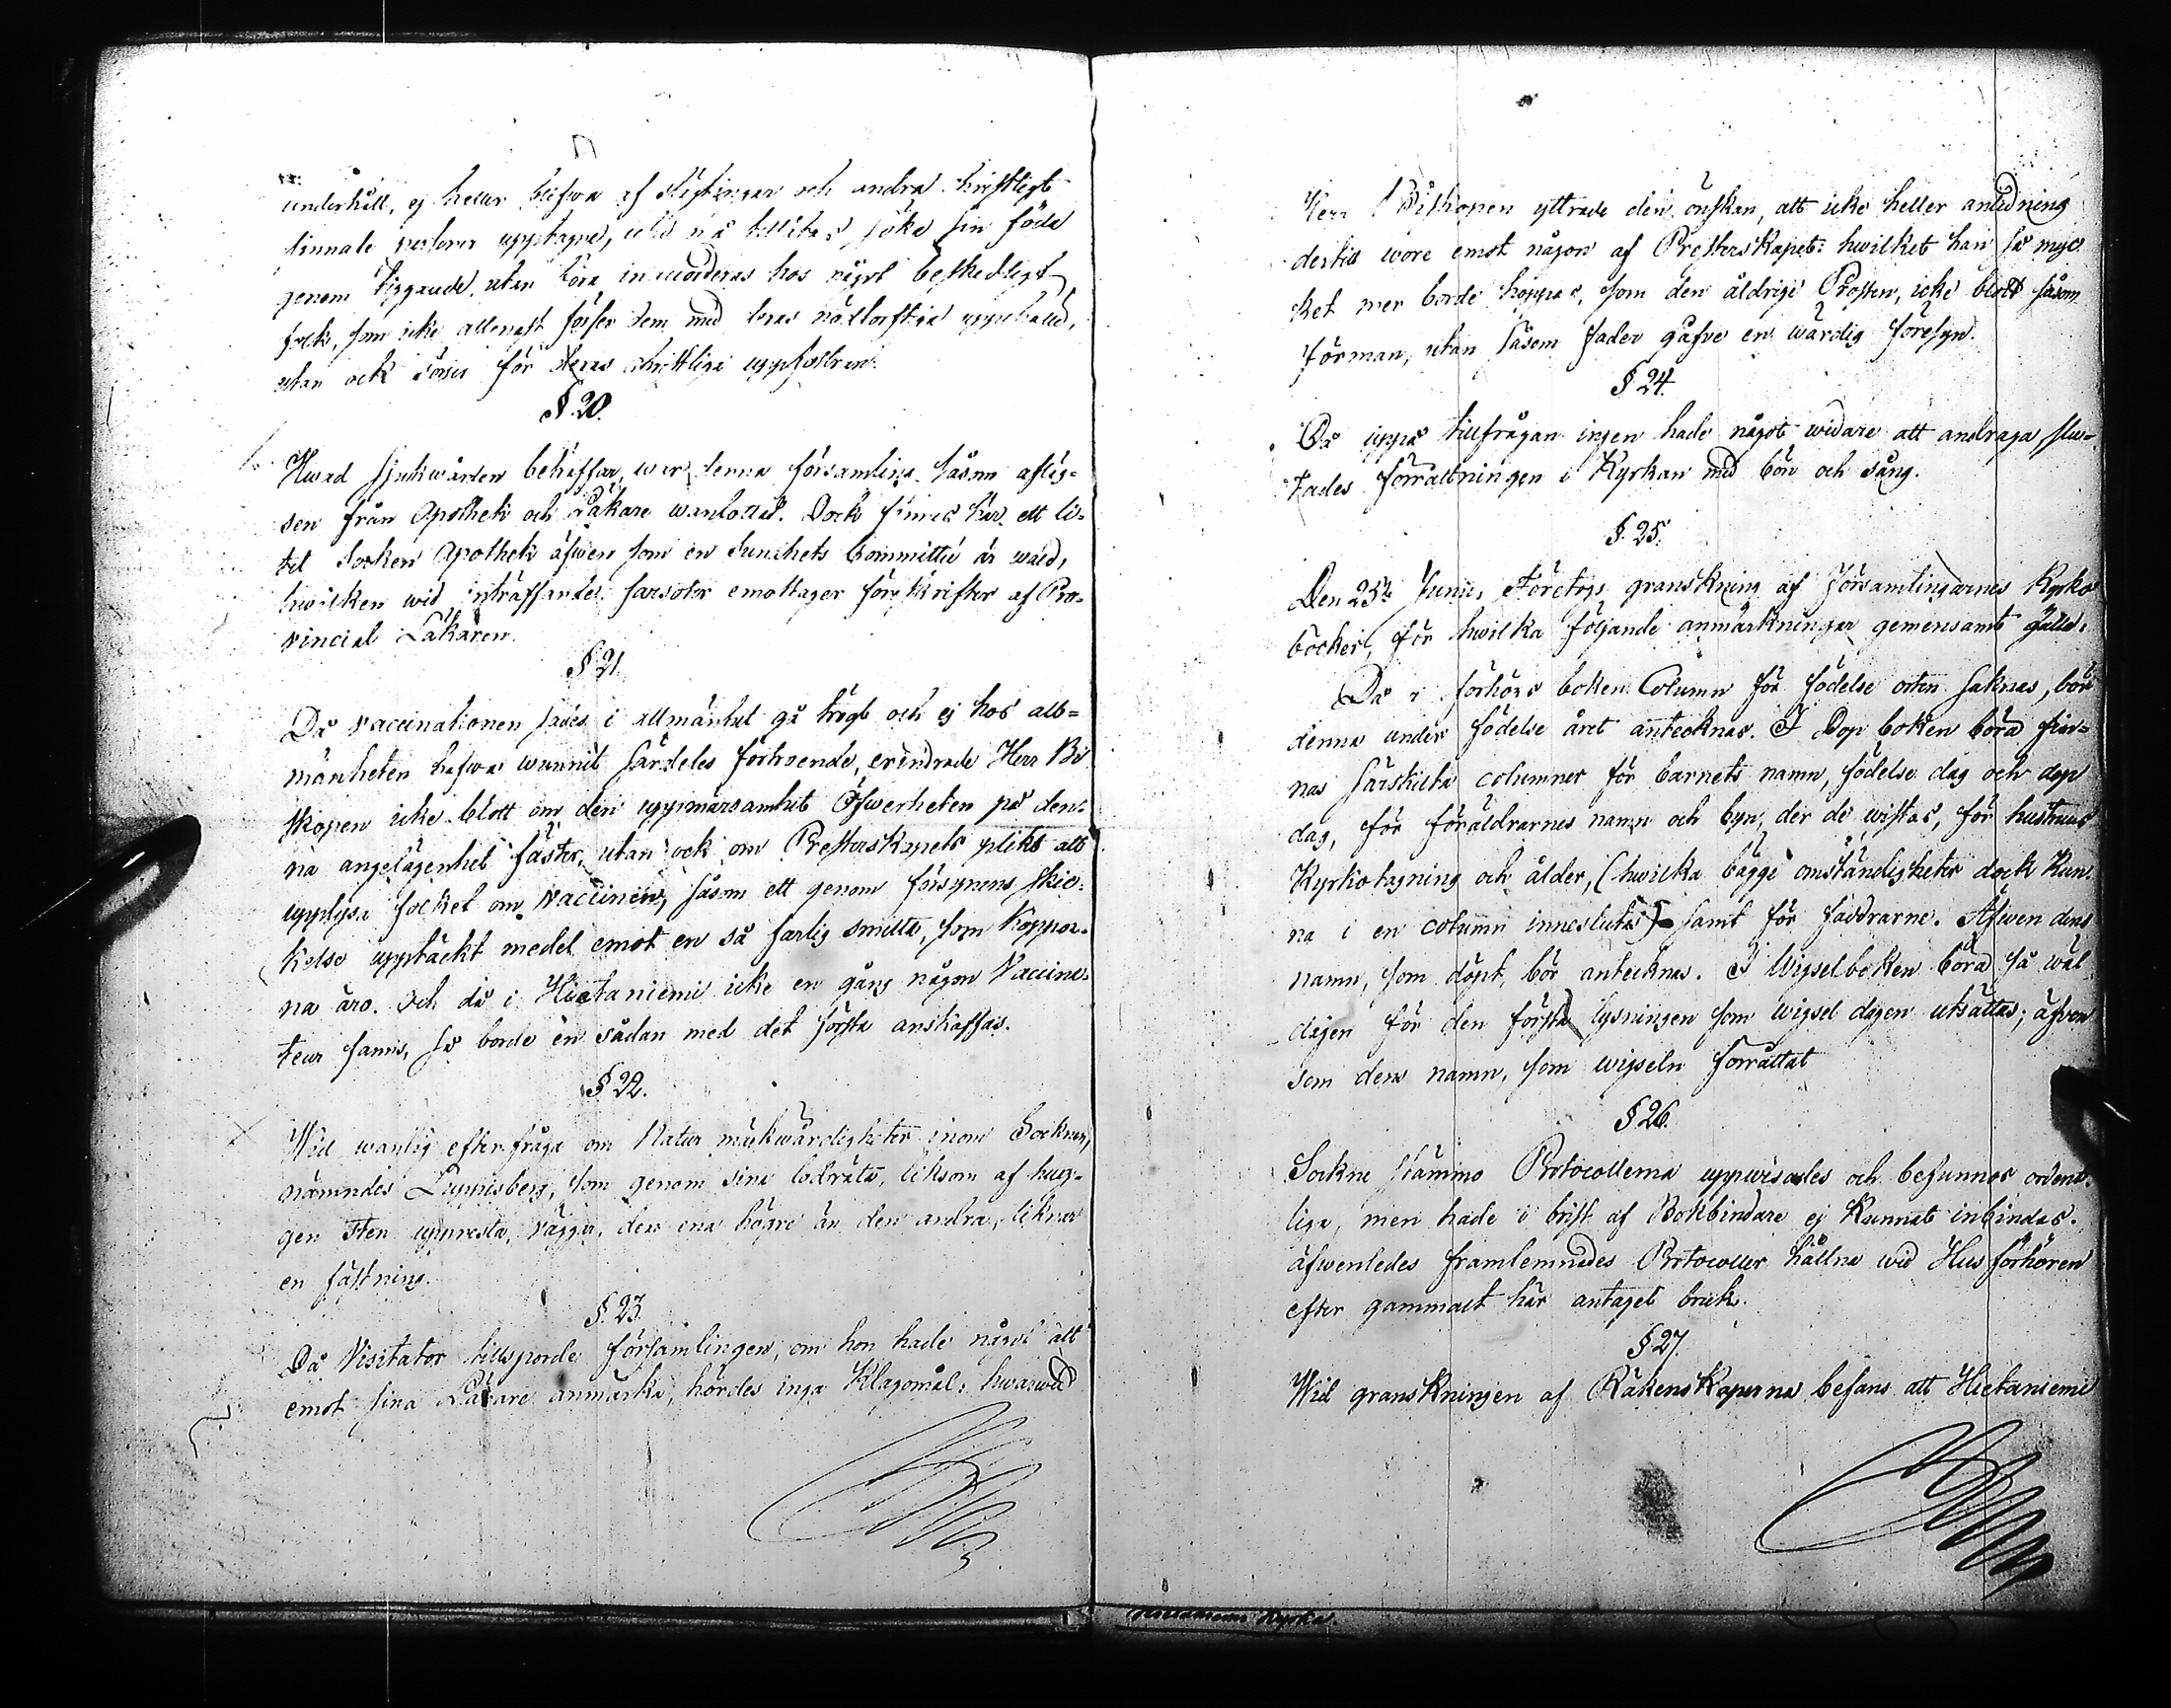 underhåll, ej heller blifwa af slägtingar och andra christligt
sinnade personer upptagne, icke må tillåtas söka sin föda
genom tiggande, utan böra inmönderas hos något beskedligt
folk, som icke allenast förser dem med deras nödtorftiga uppehälle,
utan ock sörjer för deras christliga uppfostran.
§. 20.
Hwad Sjukwården beträffar, wore denna församling, såsom afläg-
sen från Apothek och Läkare wanlottad. Dock finnes här ett li-
tet Socken Apothek äfwen som en Sundhets Committé är wald,
hwilken wid inträffande farsoter emottager föreskrifter af Pro-
vincial Läkaren.
§ 21.
Då vaccinationen sades i allmänhet gå trögt och ej hos all-
mänheten hafwa wunnit särdeles förtroende, erindrade Herr Bi
skopen icke blott om den uppmärsamhet Öfwerheten på den-
na angelägenhet fäster, utan ock om Presterskapets plikt att
upplysa folket om vaccinen, såsom ett genom försynens skic-
kelse upptäckt medel emot en så farlig smitta, som koppor-
na äro. Och då i Hietaniemi icke en gång någon Vaccina-
teur fanns, så borde en sådan med det första anskaffas.
§ 22.
Wid wanlig efterfråga om Natur märkwärdigheter inom Socknen,
nämndes Luppioberg, som genom sina lodräta, liksom af hug-
gen sten uppresta, väggar, den ena högre än den andra, liknar
en fästning.
§. 23.
Då Visitator tillsporde församlingen, om hon hade något att
emot sina Lärare anmärka, hördes inga Klagomål: hwarwid
Herr Biskopen yttrade den önskan, att icke heller anledning
dertill wore emot någon af Presterskapet: hwilket han så myc
ket mer borde hoppas, som den åldrige Prosten, icke blott såsom
Förman, utan såsom fader gåfve en wärdig föresyn.
§ 24.
Då uppå tillfrågan ingen hade något widare att andraga slu-
tades förrättningen i Kyrkan med bön och sång.
§. 25.
Den 25te Junii, företogs granskning af Församlingarnes Kyrko
böcker, för hwilka följande anmärkningar gemensamt gälla:
Då i förhörs boken Column för födelse orten saknas, bör
denna under födelse året antecknas. I Dop boken böra fin-
nas särskilta columner för barnets namn, födelse dag och dop
dag, för föräldrarnes namn och byn, der de wistas, för hustruns
Kyrkotagning och ålder, (hwilka bägge omständigheter dock kun-
na i en column inneslutas) samt för faddrarne. Äfwen dens
namn, som döpt, bör antecknas. I Wigselboken böra så wäl
dagen för den första lysningen som wigsel dagen utsättas; äfven
som dens namn, som wigseln förrättat
§ 26.
Sockne stämmo Protocollerna uppwisades och befunnos ordent-
liga, men hade i brist af Bokbindare ej kunnat inbindas.
äfwenledes framlemnades Protocoller hållna wid Husförhören
efter gammalt här antaget bruk.
§ 27.
Wid granskningen af Räkenskaperna befans att Hietaniemi